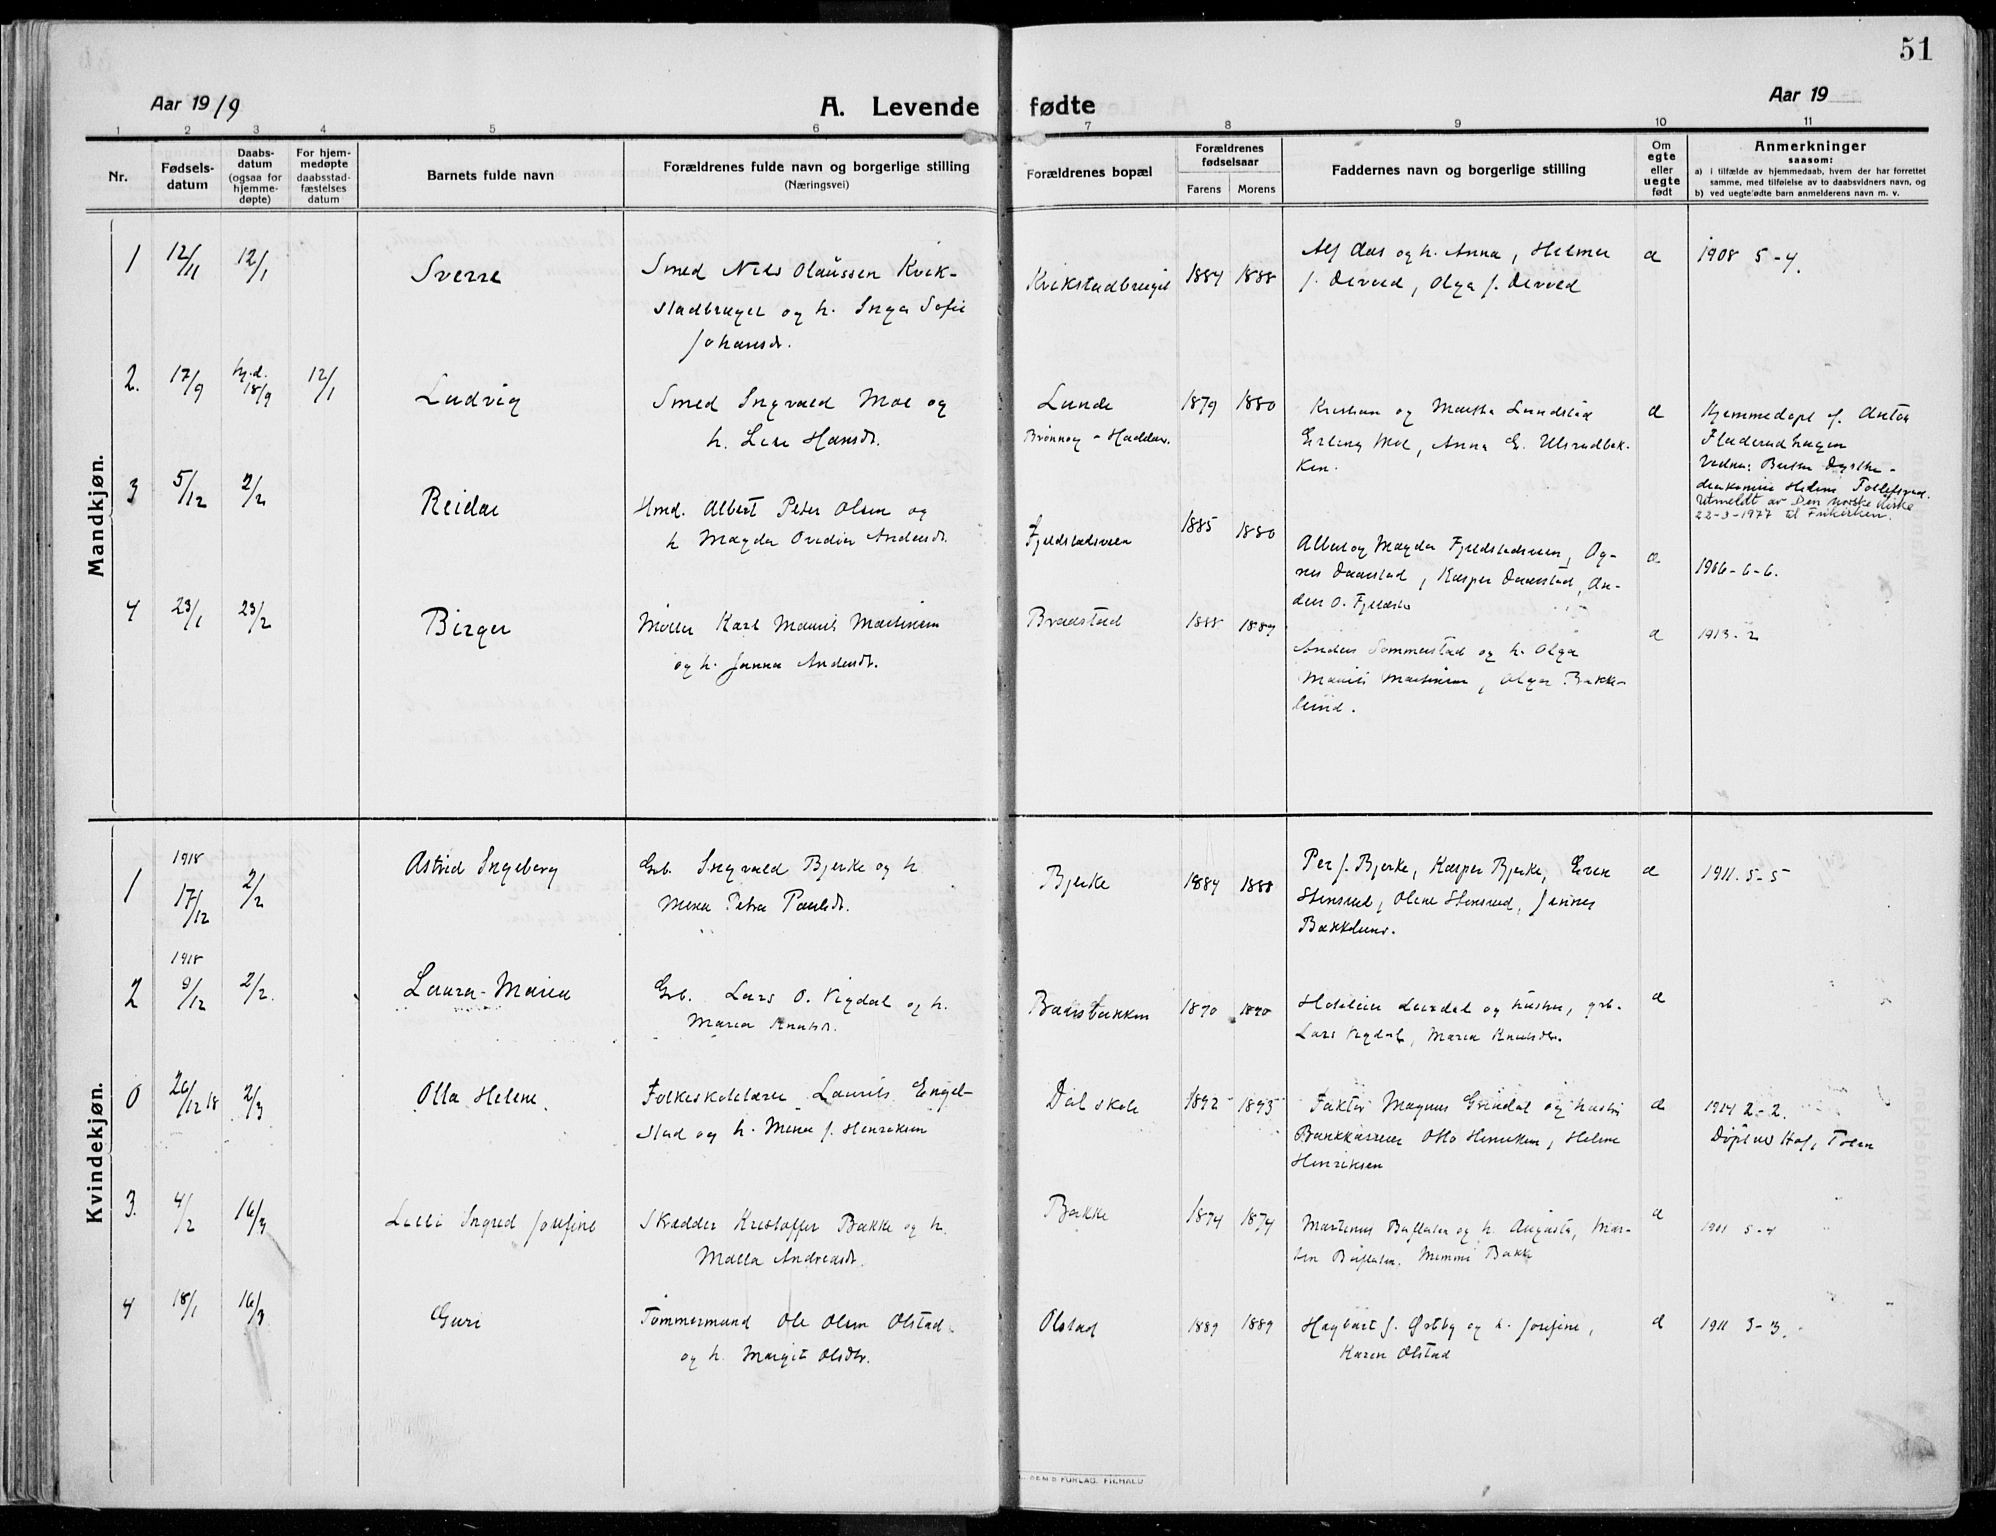 51
Aar 1919
A. Levende fødte
Aar 19
1 2 3 4 5 6 7 8 9 10 11
Nr.
Fødsels-
datum
Daabs-
datum
(ogsaa for
hjemme-
døpte)
For hjem-
medøpte
daabsstad-
fæstelses
datum
Barnets fulde navn
Forældrenes fulde navn og borgerlige stilling
(Næringsvei)
Forældrenes bopæl
Forældrenes
fødselsaar
Farens Morens
Faddernes navn og borgerlige stilling
Om
egte
eller
uegte
født
Anmerkninger
saasom:
a) i tilfælde av hjemmedaab, hvem der har forrettet
samme, med tilføielse av to daabsvidners navn, og
b) ved uegte fødte barn anmelderens navn m. v.
Mandkjøn.
1 12/11 12/1 Sverre
Smed Nils Olaussen Kvik-
stadbruget og h. Inga Sofie
Johansdr.
Kvikstadbruget 1884 1888
Alf Aas og h. Anna, Helmer
a 1908 5-4.
2. 17/9 hj.d. 18/9 12/1 Ludvig
Smed Ingvald Moe og
h. Lise Hansdr.
Lunde
1879 1880
Kristian og Martha Lundstad
Erling Moe, Anna E. Ulsrudbak-
ken.
a
Hjemmedøpt af Anton
Utmeldt av Den norske kirke
22-3-1977 til Frikirken.
3 5/12 2/2 Reidar
Hmd. Albert Peter Olsen og
h Magda Ovedia Andersdr.
Fjeldstadsveen 1885 1880
Albert og Magda Fjeldstadsveen, Ag-
nes Daaestad, Kasper Daaestad, An-
ders O. Fjeldsta
a 1906-6-6.
4 23/1 23/2 Birger
Møller Karl Mauritz Martinsen
og h. Janna Andersdr.
Braastad 1888 1889
Anders Sommerstad og h. Olga
Martinsen, Olga Bakke-
lund.
a 1913-2
Kvindekjøn.
1 1918 17/12 2/2 Astrid Ingeborg
Grb. Ingvald Bjerke og h
Mina Petra Paulsdr.
Bjerke 1884 1888
Per J. Bjerke, Kasper Bjerke, Even
Stensrud, Olene Stensrud,
a 1911. 5-5
2 1918 9/12 2/2. Laura-Maria
Grb. Lars O. Vigdal og h.
Maria Knutsdr.
Baasbakken 1870
og hustru, grb.
Lars Vigdal, Maria Knutsdr.
a
0 26/12 18 2/3 Olla Helene.
Folkeskolelærer Laurits Engel-
stad og h. Mina f. Henriksen
Dal skole 1892 1895
Faktor Magnus Grindal og hustru
Bankkasserer Otto Henriksen, Helene
Henriksen
a 1914 2-2.
3. 4/2 16/3 Lilli Ingrid Josefine
Skrædder Kristoffer Bakke og h.
Malla Andreasdr.
Bakke 1874 1874
Martinus og h. Augusta, Mar-
Mimmi Bakke
a 1901 5-4
4 18/1 16/3 Guri
Tømmermand Ole Olsen Olstad
og h. Margit Olsdtr.
Olstad 1889 1889
Hagbart J. Østby og h. Josefine,
Karen Olstad
a 1911 3-3.